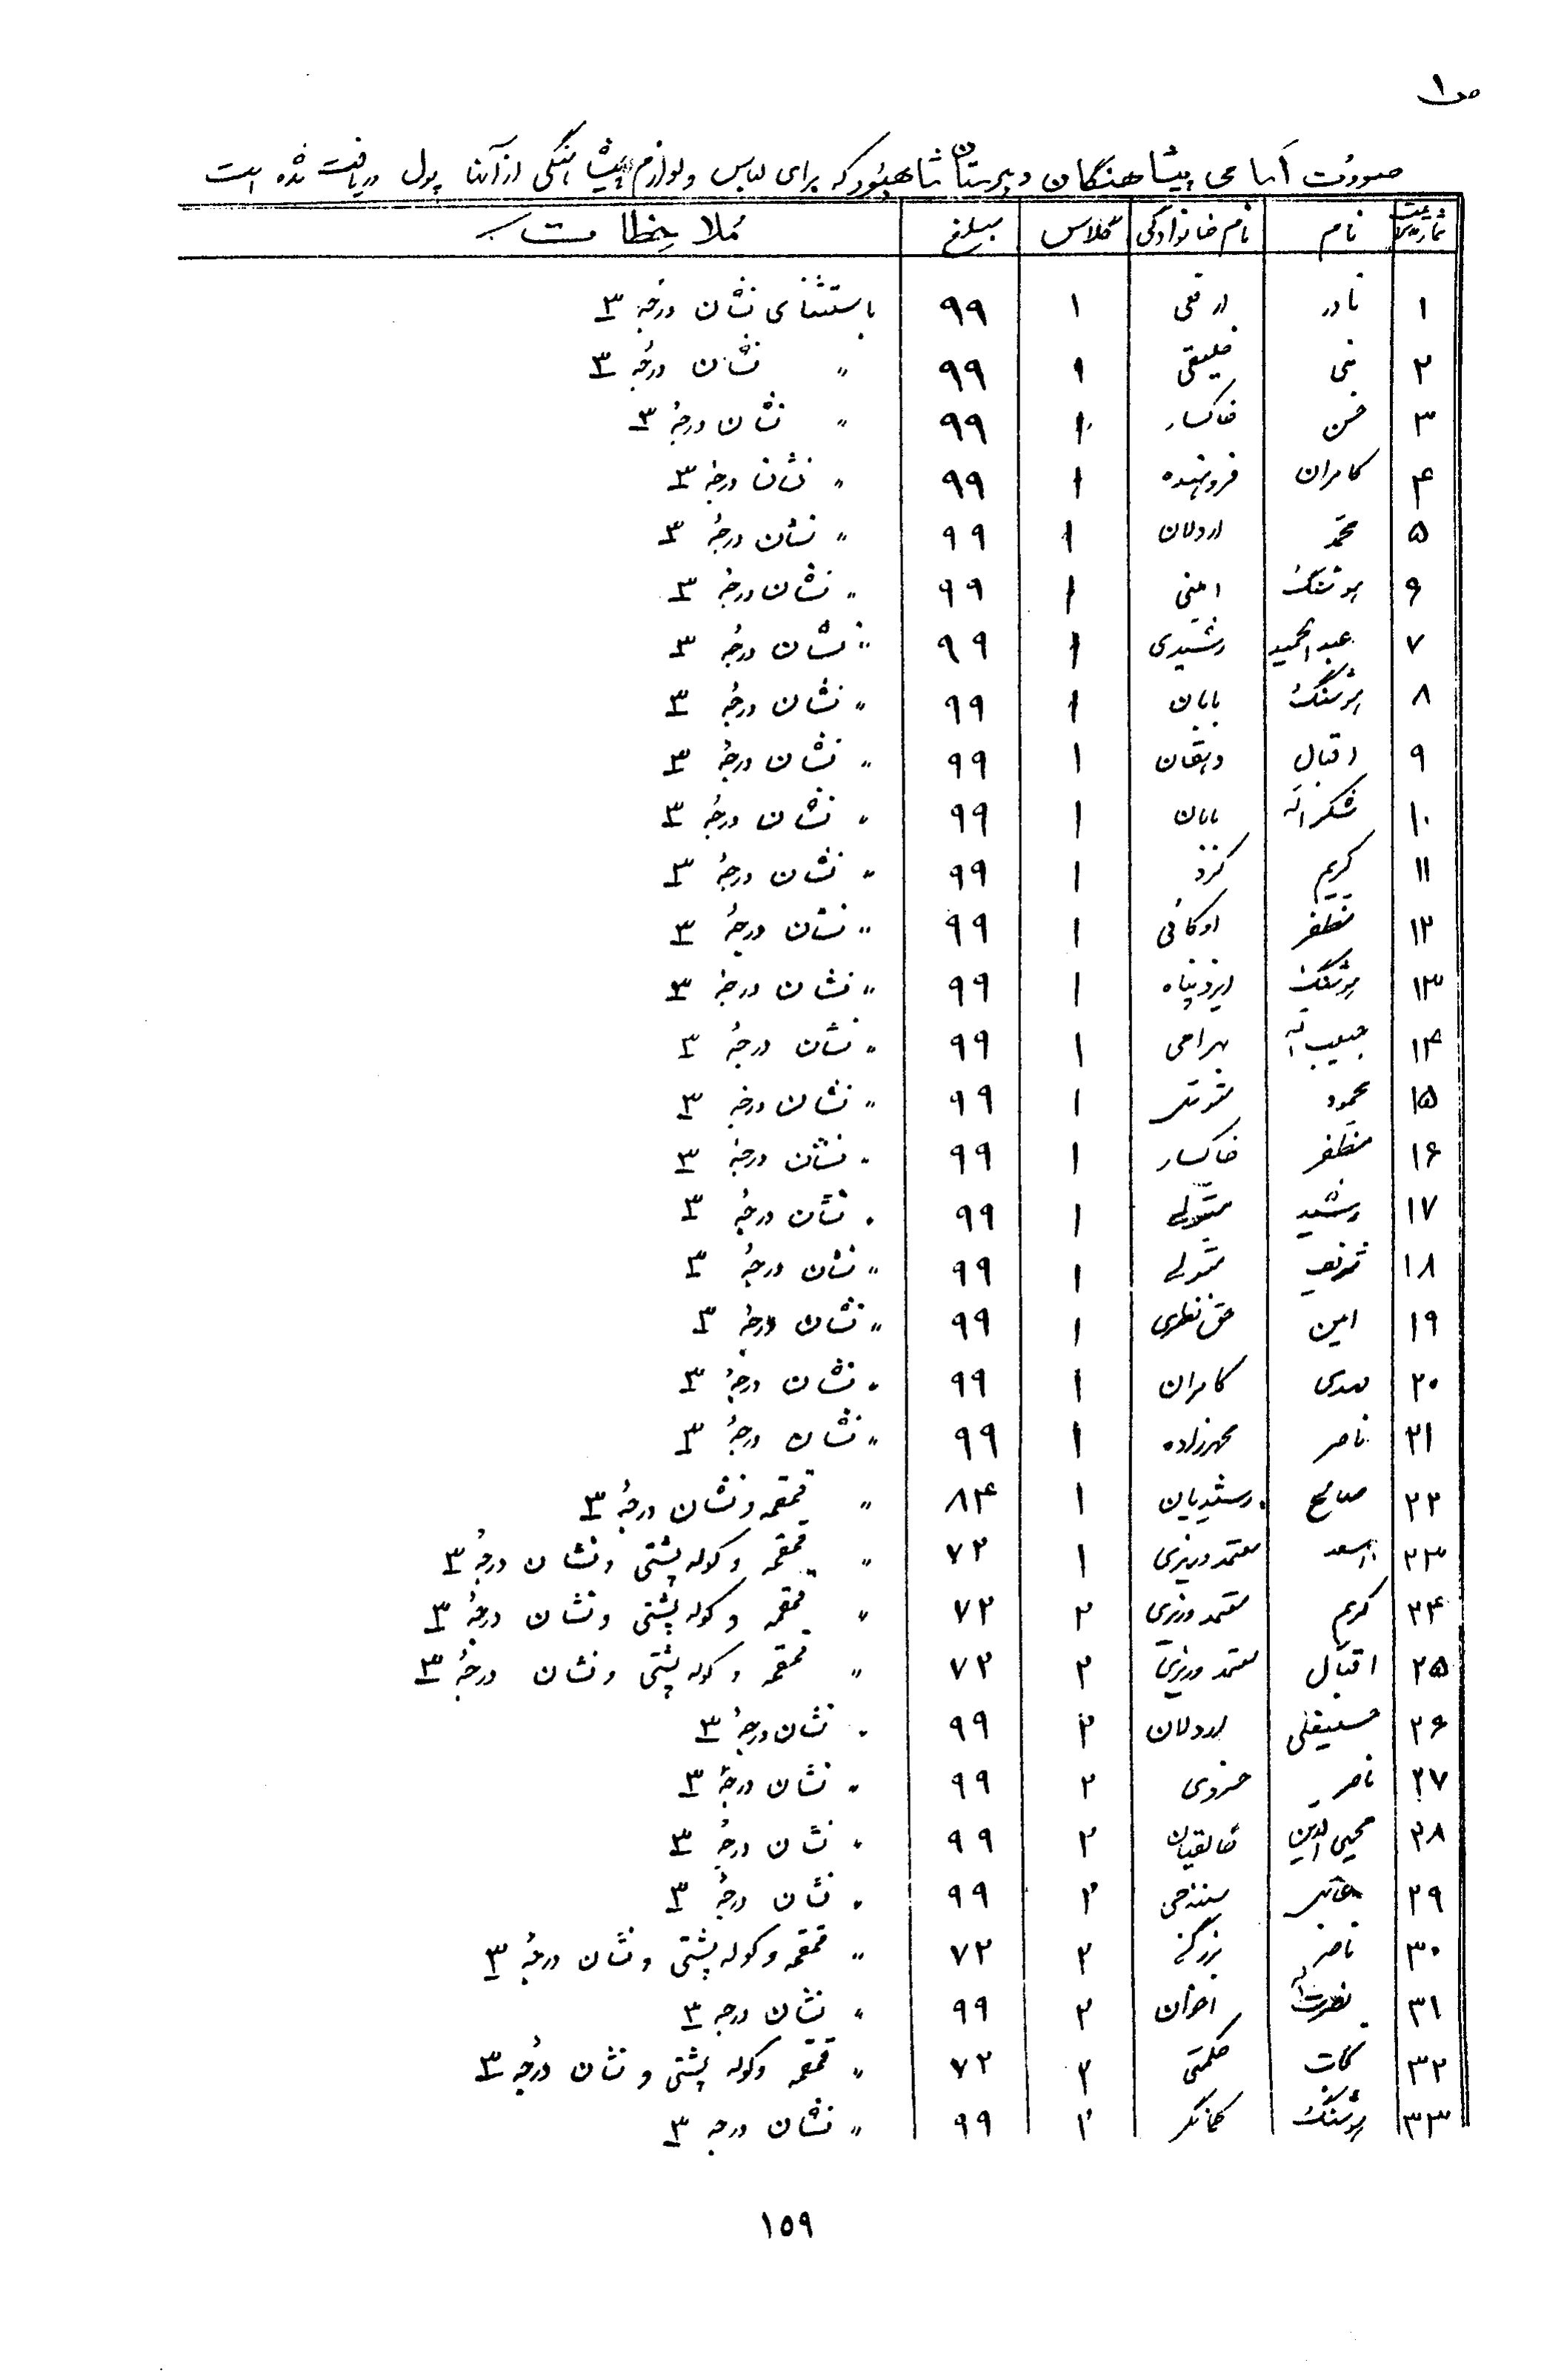 ص ۱
صورت اسامی پیشاهنگان دبیرستان شاهپور که برای لباس و لوازم پیشاهنگی از آنها پول دریافت شده است
نام نام خانوادگی کلاس مبلغ ملاحظات
۱ نادر ۱ ۹۹ باستثنای نشان درجه ۳
۲ خلیقی ۱ ۹۹ " نشان درجه ۳
۳ حسن خاکسار ۱ ۹۹ " نشان درجه ۳
۴ کامران فروهیده ۱ ۹۹ " نشان درجه ۳
۵ محمد اردلان ۱ ۹۹ " نشان درجه ۳
۶ هوشنگ امینی ۱ ۹۹ " نشان درجه ۳
۷ عبدالحمید رشیدی ۱ ۹۹ " نشان درجه ۳
۸ هوشنگ بابان ۱ ۹۹ " نشان درجه ۳
۹ اقبال دهقان ۱ ۹۹ " نشان درجه ۳
۱۰ شکراله بابان ۱ ۹۹ " نشان درجه ۳
۱۱ کریم ۱ ۹۹ " نشان درجه ۳
۱۲ مظفر ۱ ۹۹ " نشان درجه ۳
۱۳ هوشنگ ایزدپناه ۱ ۹۹ " نشان درجه ۳
۱۴ حبیب اله بهرامی ۱ ۹۹ " نشان درجه ۳
۱۵ محمود ۱ ۹۹ " نشان درجه ۳
۱۶ مظفر خاکسار ۱ ۹۹ " نشان درجه ۳
۱۷ رشید متولی ۱ ۹۹ " نشان درجه ۳
۱۸ شریف متولی ۱ ۹۹ " نشان درجه ۳
۱۹ امین حق نظری ۱ ۹۹ " نشان درجه ۳
۲۰ مهدی کامران ۱ ۹۹ " نشان درجه ۳
۲۱ ناصر مهرزاده ۱ ۹۹ " نشان درجه ۳
۲۲ صالح رشیدیان ۱ ۸۴ " قمقمه و نشان درجه ۳
۲۳ اسعد معتمد وزیری ۱ ۷۲ " قمقمه و کوله پشتی و نشان درجه ۳
۲۴ کریم معتمد وزیری ۲ ۷۲ " قمقمه و کوله پشتی و نشان درجه ۳
۲۵ اقبال معتمد وزیری ۲ ۷۲ " قمقمه و کوله پشتی و نشان درجه ۳
۲۶ حسینقلی اردلان ۲ ۹۹ " نشان درجه ۳
۲۷ ناصر خسروی ۲ ۹۹ " نشان درجه ۳
۲۸ محیی الدین خالقیان ۲ ۹۹ " نشان درجه ۳
۲۹ سنندجی ۲ ۹۹ " نشان درجه ۳
۳۰ ناصر ۲ ۷۲ " قمقمه و کوله پشتی و نشان درجه ۳
۳۱ نصرت اله اخوان ۲ ۹۹ " نشان درجه ۳
۳۲ حکمتی ۲ ۷۲ " قمقمه و کوله پشتی و نشان درجه ۳
۳۳ هوشنگ ۲ ۹۹ " نشان درجه ۳
۱۵۹